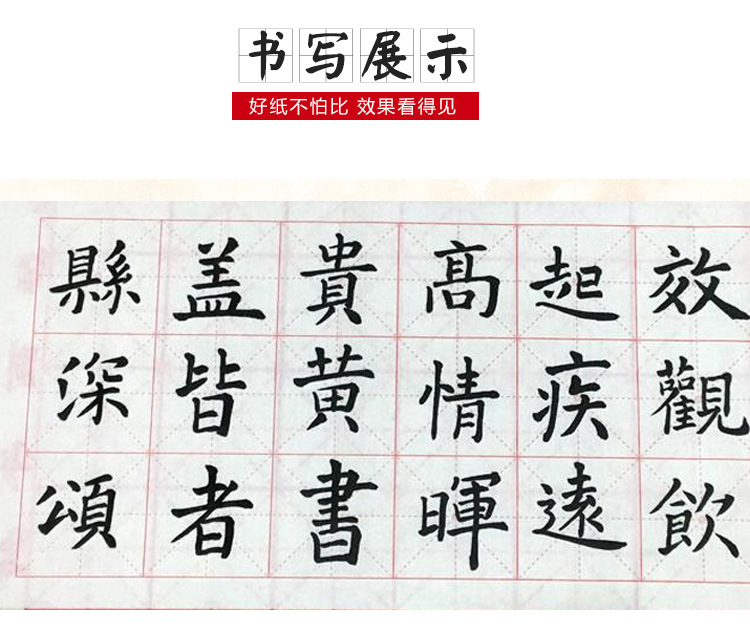 书写展示
好纸不怕比 效果看得见
縣盖貴髙起效
深皆黄情疾觀
頌者書暉遠飲